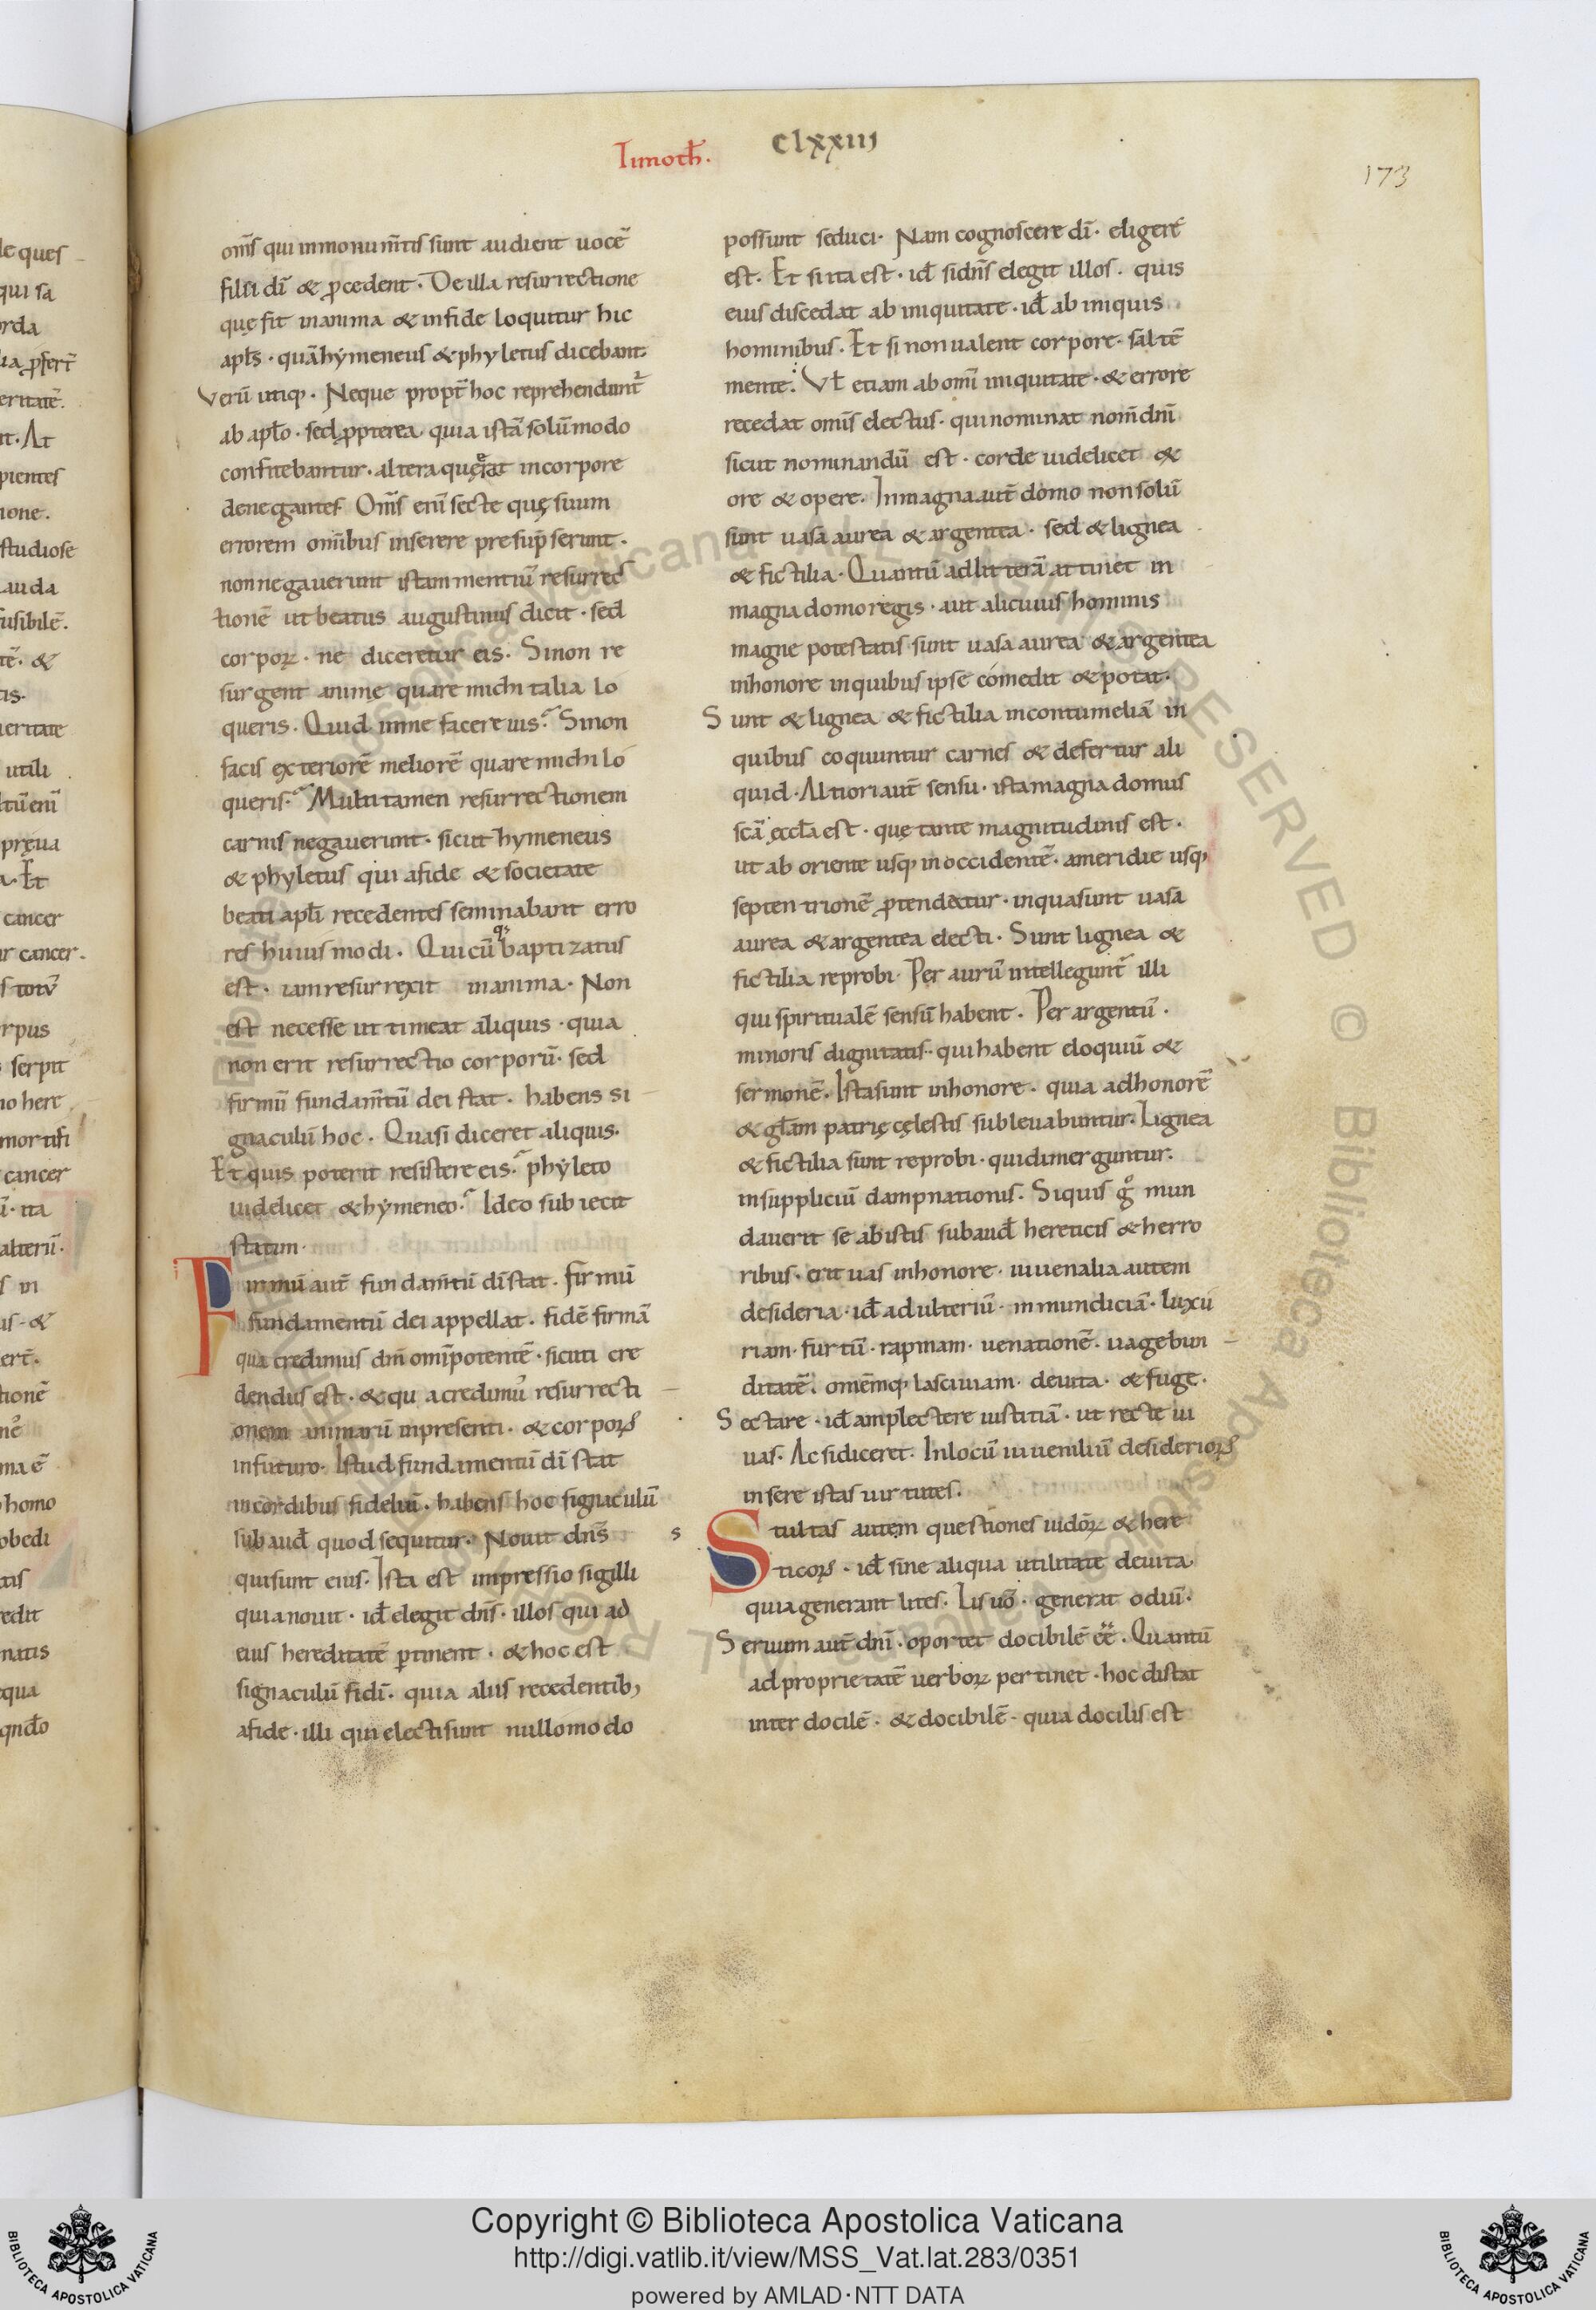 Timoth̄.
clxxiij
173
om̄s qui in monum̄tis sunt audient uocē
filii dī & ꝓcedent. De illa resurrectione
quę fit in anima & in fide loquitur hic
apl̄s. quā hẏmeneus & phyletus dicebant
verū utiq;. Neque propt̄ hoc reprehendunt᷑
ab apl̄o. sed ꝓpterea quia istā solūmodo
confitebantur. altera quę erat in corpore
denegantes Om̄s enī secte quę suum
errorem om̄ibus inserere presūpserunt.
non negauerunt istam mentiū resurrec
tionē ut beatus augustinus dicit. sed
corpoꝝ. ne diceretur eis. Si non re
surgent animę quare michi talia lo
queris. Quid in me facere uis? Si non
facis exteriorē meliorē quare michi lo
queris? Multi tamen resurrectionem
carnis negauerunt. sicut hymeneus
& phyletus qui a fide & societate
beati apl̄i recedentes seminabant erro
res huius modi. Quicūq; baptizatus
est. iam resurrexit in anima. Non
est necesse ut timeat aliquis. quia
non erit resurrectio corporū. sed
firmū fundam̄tū dei stat. habens si
gnaculū hoc. Quasi diceret aliquis.
Et quis poterit resistere eis? phẏleto
uidelicet & hẏmeneo? Ideo subiecit
statim.
Firmū aut̄ fundam̄tū dī stat. firmū
fundamentū dei appellat. fidē firmā
qua credimus dm̄ omīpotentē. sicuti cre
dendus est. & qua credim᷒ resurrecti
onem animarū in presenti. & corpoꝝ
in futuro. Istud fundamentū dī stat
in cordibus fideliū. habens hoc signaculū
subaud̄ quod sequitur. Nouit dn̄s
qui sunt eius. Ista est impressio sigilli
quia nouit. id̄ elegit dn̄s. illos qui ad
eius hereditatē ꝑtinent. & hoc est
signaculū fidī. quia aliis recedentib;
a fide. illi qui electi sunt nullo modo
possunt seduci. Nam cognoscere dī. eligere
est. Et si ita est. id̄ si dn̄s elegit illos. quis
eius discedat ab iniquitate. id̄ ab iniquis
hominibus. Et si non ualent corpore. saltē
mente. Vł etiam ab omī iniquitate. & errore
recedat omīs electus. qui nominat nom̄ dnī
sicut nominandū est. corde uidelicet &
ore & opere. In magna aut̄ domo non solū
sunt uasa aurea & argentea. sed & lignea
& fictilia. Quantū ad litterā attinet in
magna domo regis. aut alicuius hominis
magne potestatis sunt uasa aurea & argentea
in honore in quibus ipse cómedit & potat.
Sunt & lignea & fictilia in contumeliā in
quibus coquuntur carnes & defertur ali
quid. Altiori aut̄ sensu. ista magna domus
scā ęccl̄a est. quę tante magnitudinis est.
ut ab oriente usq; in occidentē. a meridie usq;
septentrionē ꝓtendatur. in qua sunt uasa
aurea & argentea electi. Sunt lignea &
fictilia reprobi. Per aurū intellegunt᷑ illi
qui spiritualē sensū habent. Per argentū.
minoris dignitatis. qui habent eloquiū &
sermonē. Ista sunt in honore. quia ad honorē
& gl̄am patrię cęlestis subleuabuntur. Lignea
& fictilia sunt reprobi. qui dimerguntur.
in suppliciū dampnationis. Si quis gͦ mun
dauerit se ab istis subaud̄ hereticis & herro
ribus. erit uas in honore. iuuenalia autem
desideria. id̄ adulteriū. inmundiciā. luxu
riam. furtū. rapinam. uenationē. uagebun
ditatē. omēmq; lasciuiam. deuita. & fuge.
Sectare. id̄ amplectere iustitiā. ut recte ui
uas. Ac si diceret. In locū iuueniliū desiderioꝝ
insere istas uirtutes.
s
Stultas autem questiones uidōꝝ & here
ticoꝝ. id̄ sine aliqua utilitate deuita
quia generant lites. Lis uō. generat odiū.
Seruum aut̄ dnī. oportet docibilē ēē. Quantū
ad proprietatē uerboꝝ pertinet. hoc distat
inter docilē. & docibilē. quia docilis est
Copyright © Biblioteca Apostolica Vaticana
http://digi.vatlib.it/view/MSS_Vat.lat.283/0351
powered by AMLAD·NTT DATA